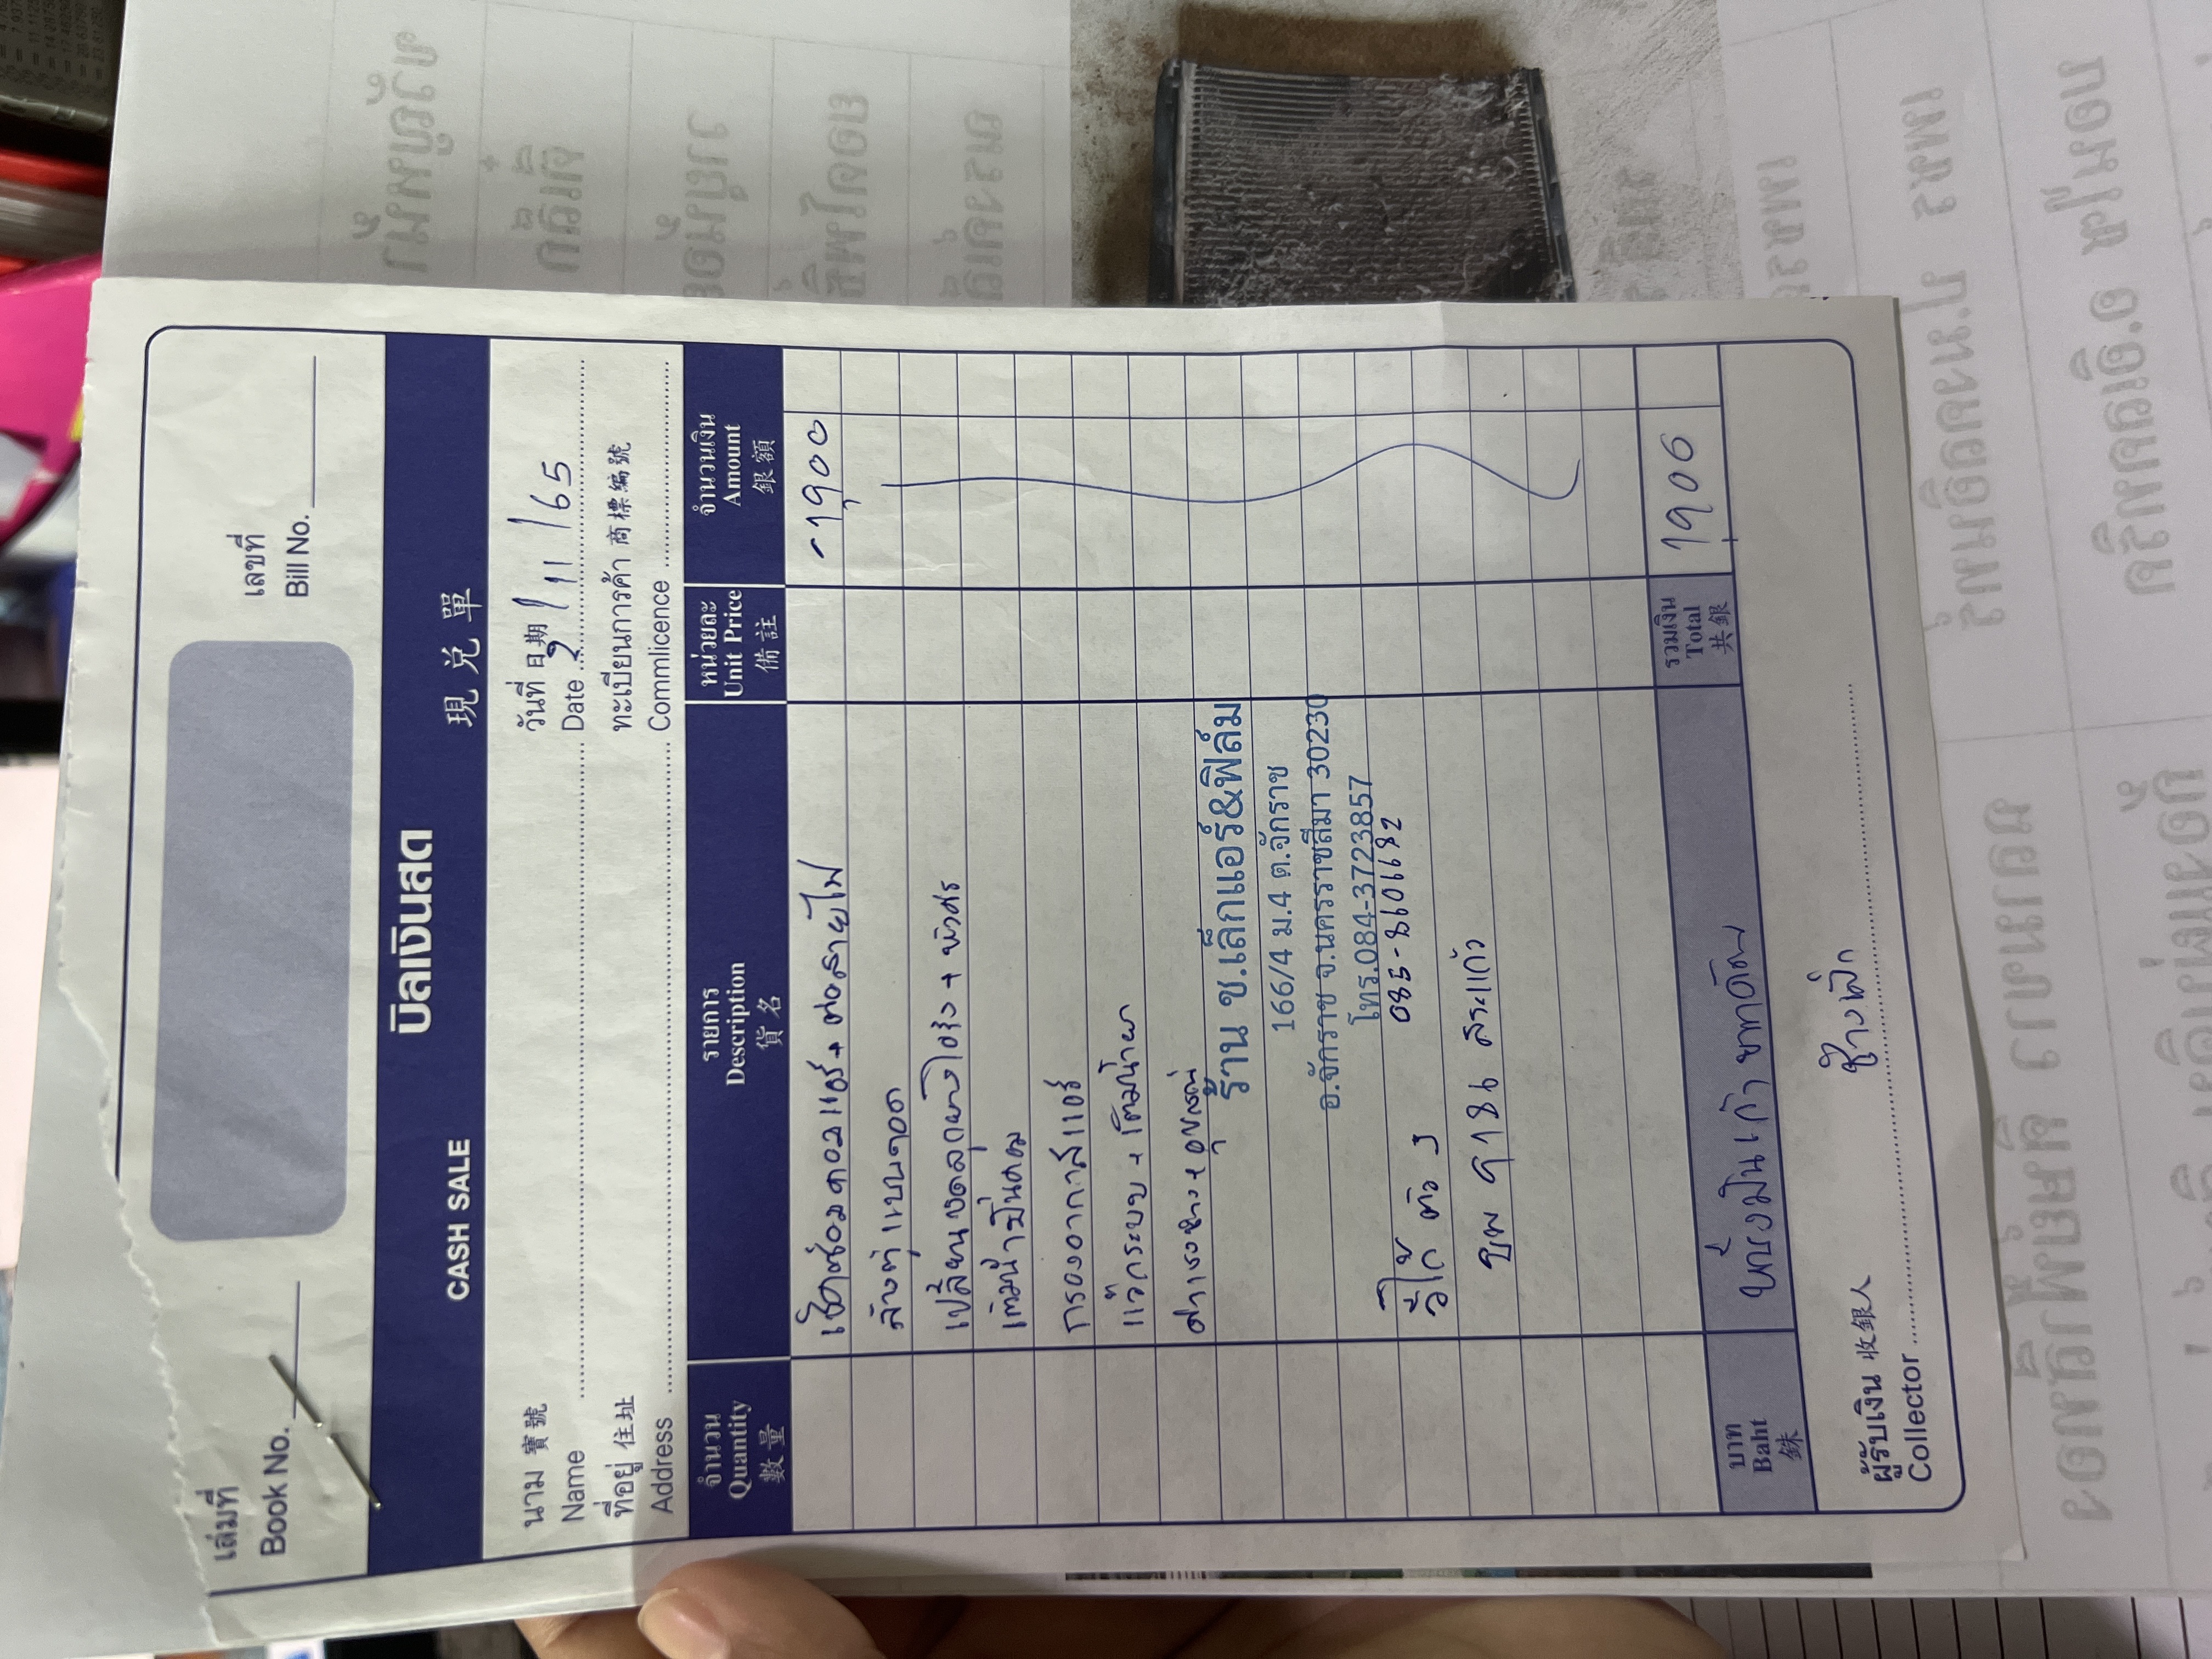 เล่มที่
Book No.
เลขที่
Bill No.
บิลเงินสด
CASH SALE
現兌單
นาม 寶號
Name
วันที่ 日期
Date 9/11/65
ที่อยู่ 住址
Address
ทะเบียนการค้า 商標編號
Commlicence
จำนวน
Quantity
數量
รายการ
Description
貨名
หน่วยละ
Unit Price
備註
จำนวนเงิน
Amount
銀額
เช็คซ่อมคอมแอร์ + ต่อสายไฟ
1900
ล้างตู้แบบถอด
เปลี่ยน + 
เติมน้ำมันคอม
กรองอากาศแอร์
แว๊กระบบ + เติมน้ำยา
ค่าแรงช่าง + อุปกรณ์
ร้าน ช.เล็กแอร์&ฟิล์ม
166/4 ม.4 ต.จักราช
อ.จักราช จ.นครราชสีมา 30230
โทร.084-3723857
วีโก้
สระแก้ว
รวมเงิน
Total
共銀
1900
บาท
Baht
銖
หนึ่งพันเก้า
ผู้รับเงิน 收銀人
Collector
ช่างเล็ก